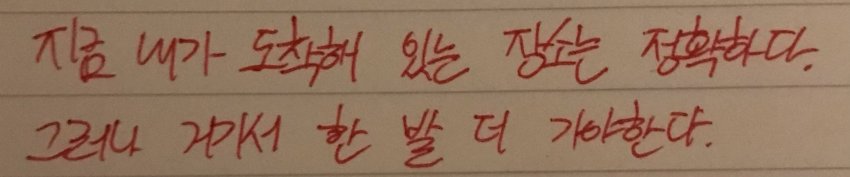 지금 내가 도착해 있는 장소는 정확하다.
그러나 거기서 한 발 더 가야한다.